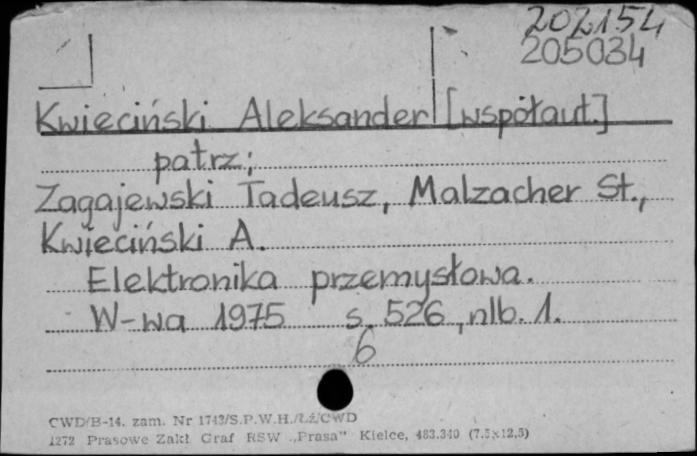 202154
205034
Kwieciński Aleksander [współaut.]
patrz;
Zagajewski Tadeusz, Malzacher St.,
Kwieciński A.
Elektronika przemysłowa.
W-wa 1975 s. 526, nlb. 1.
6
CWD/B-14. zam. Nr 1743/S.P.W.H./Łź/CWD
1272 Prasowe Zakł. Graf RSW „Prasa" Kielce, 483.340 (7.5x12,5)